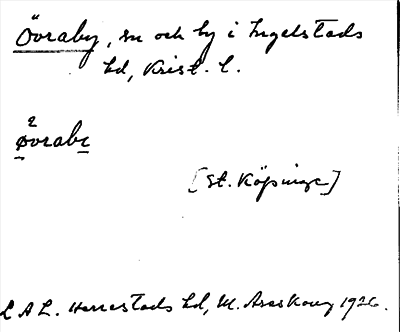 Övraby, sn och by i Ingelstads
hd, Krist. l.
2
øvrabɛ
[St. Köpinge]
LAL. Herrestads hd, M. Areskoug 1926.